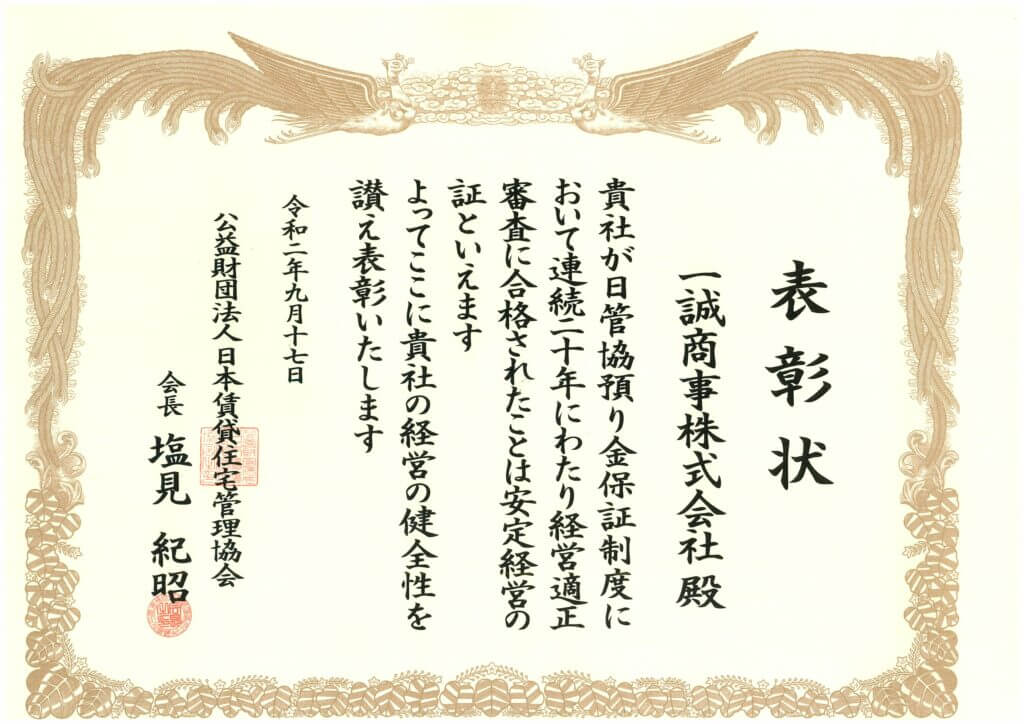 表彰状
一誠商事株式会社 殿
貴社が日管協預り金保証制度に
おいて連続二十年にわたり経営適正
審査に合格されたことは安定経営の
証といえます
よってここに貴社の経営の健全性を
讃え表彰いたします
令和二年九月十七日
公益財団法人日本賃貸住宅管理協会
会長 塩見 紀昭